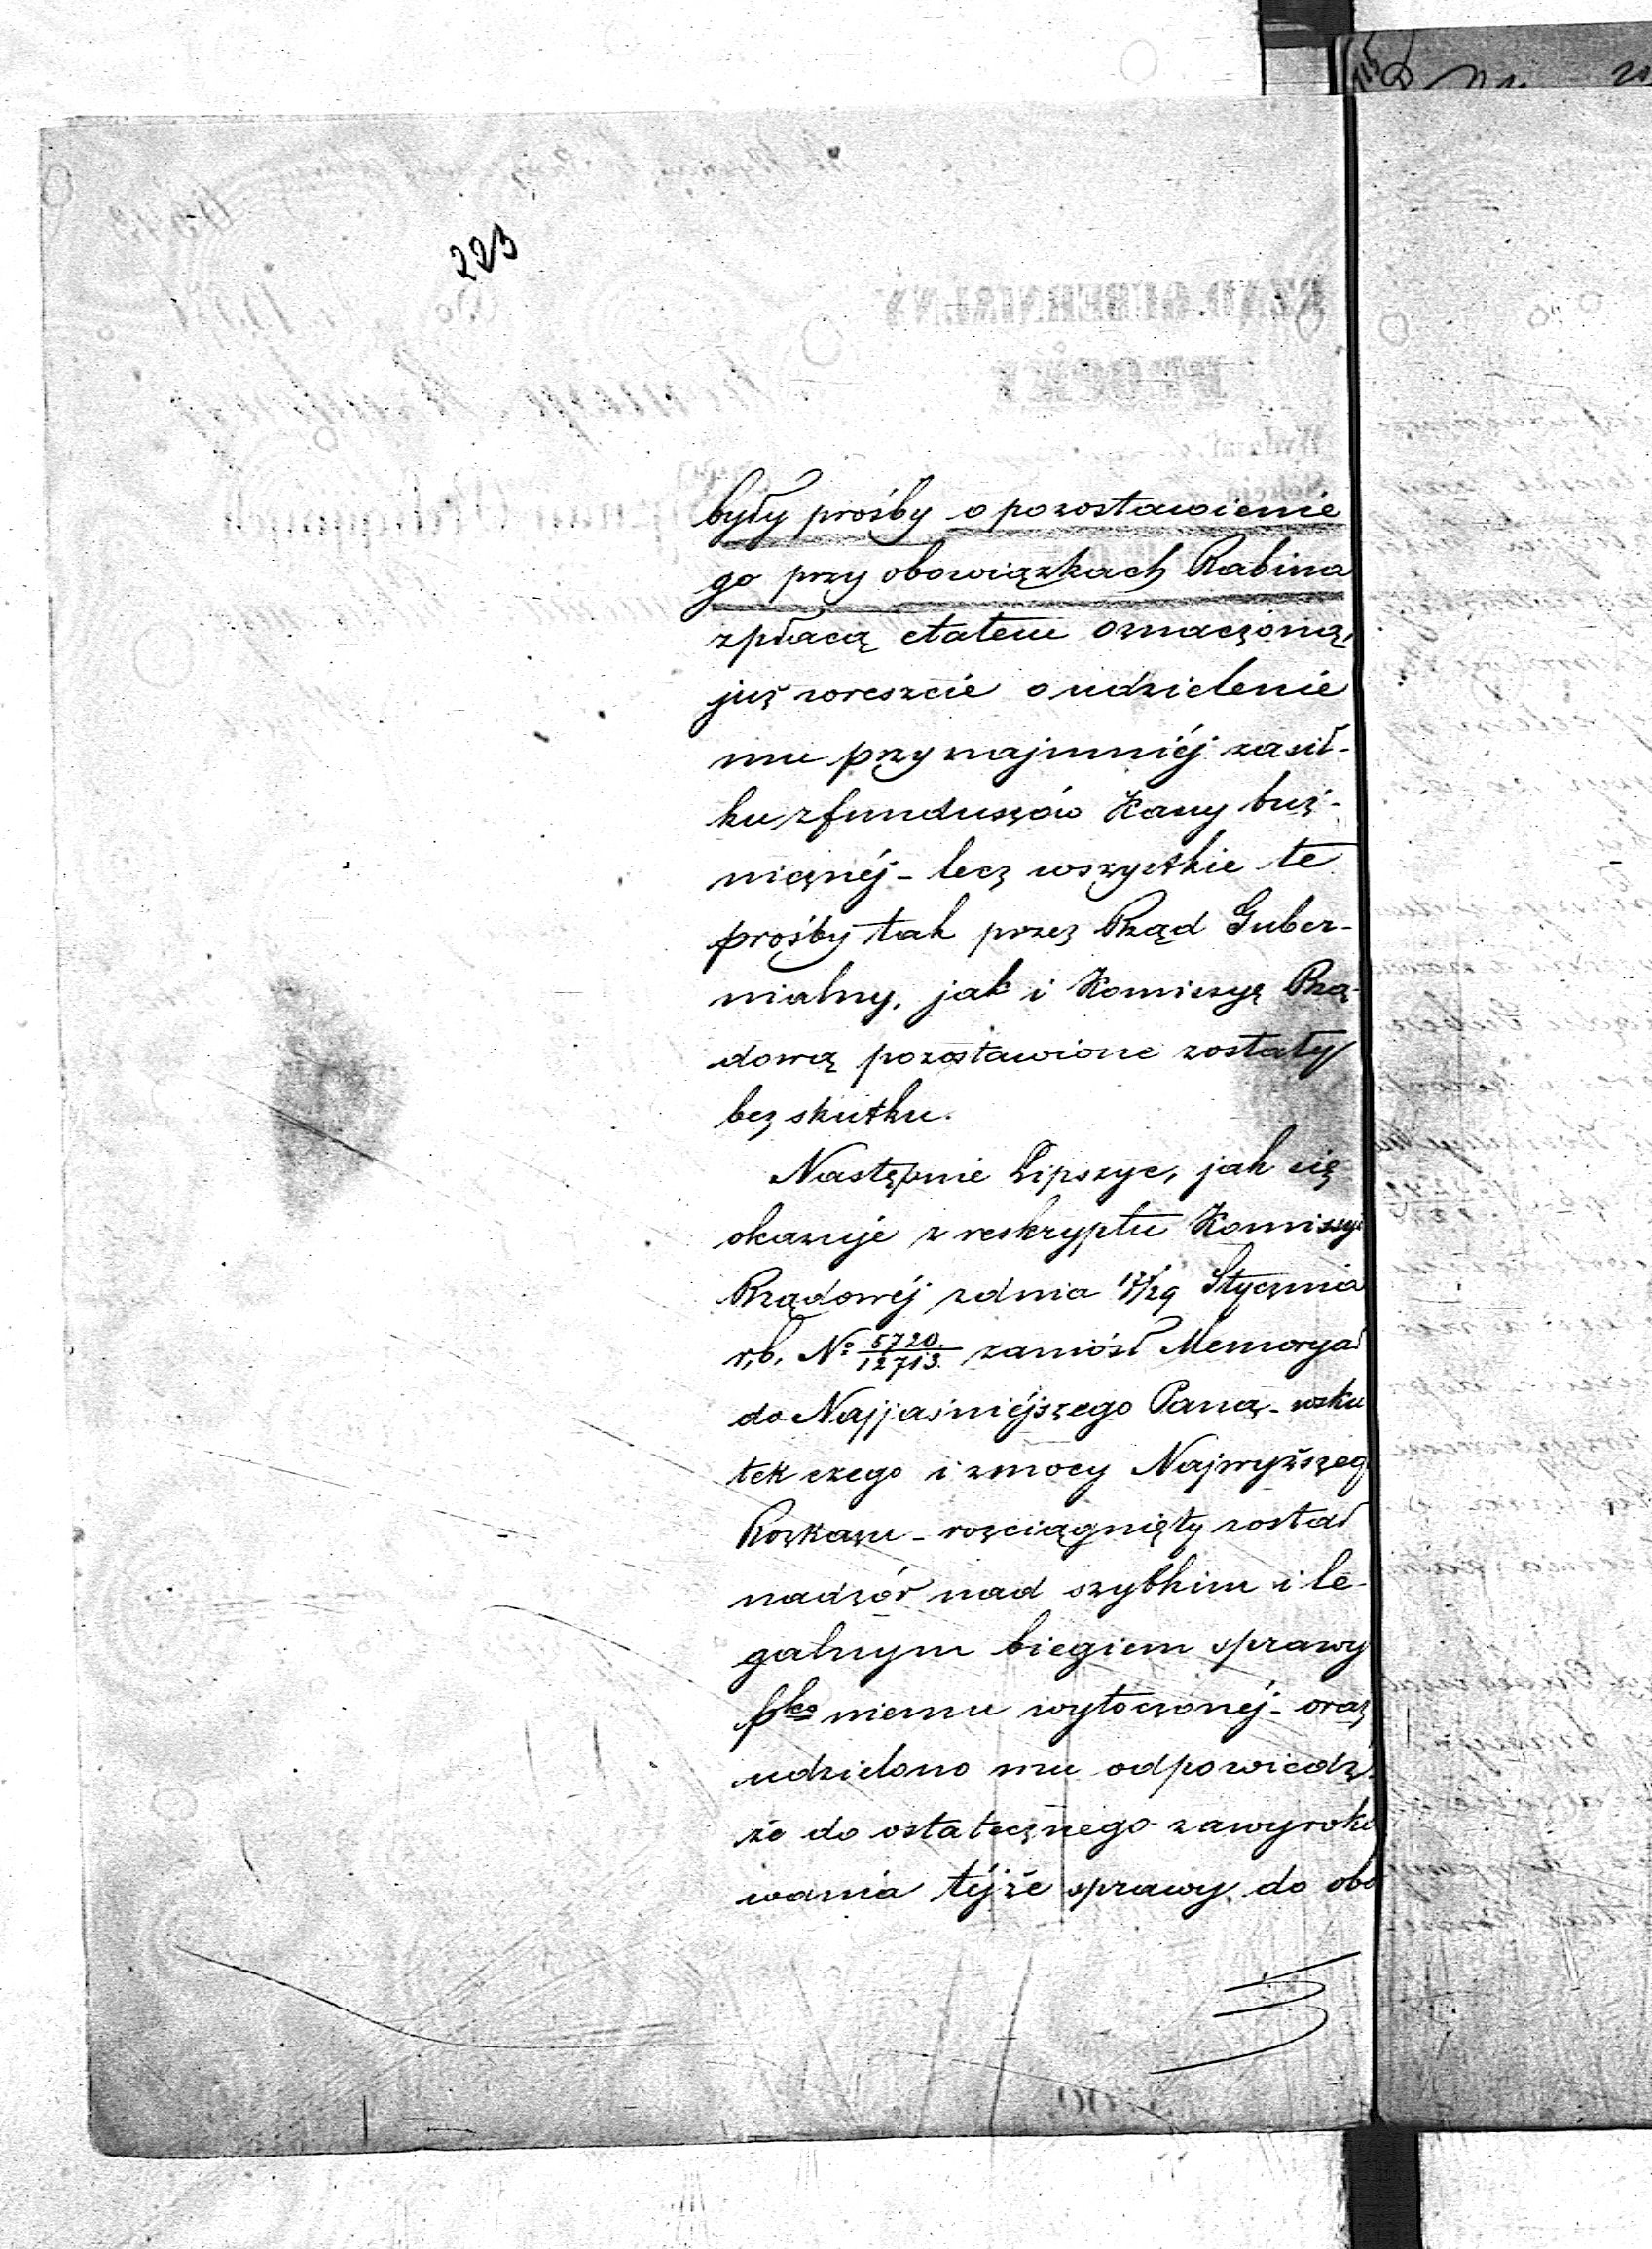 223
były prośby o pozostawienie
go przy obowiązkach Rabina
z płacą etatem oznaczoną,
już wreszcie o udzielenie
mu przynajmniéj zasił-
ku z funduszów Kassy buż-
nicznéj - lecz wszystkie te
prośby tak przez Rząd Guber-
nialny, jak i Komissyę Rzą-
dową pozostawione zostały
bez skutku.
Następnie Lipszyc, jak się
okazuje z reskryptu Komissyi
Rządowéj z dnia 17/29 Stycznia
r.b. No 5720/12713 zaniósł Memoryał
do Najjaśniéjszego Pana - wsku
tek czego i z mocy Najwyższego
Rozkazu - rozciągnięty został
nadzór nad szybkim i le-
galnym biegiem sprawy
pko niemu wytoczonéj - oraz
udzielono mu odpowiedź,
że do ostatecznego zawyroko
wania téjże sprawy do obo